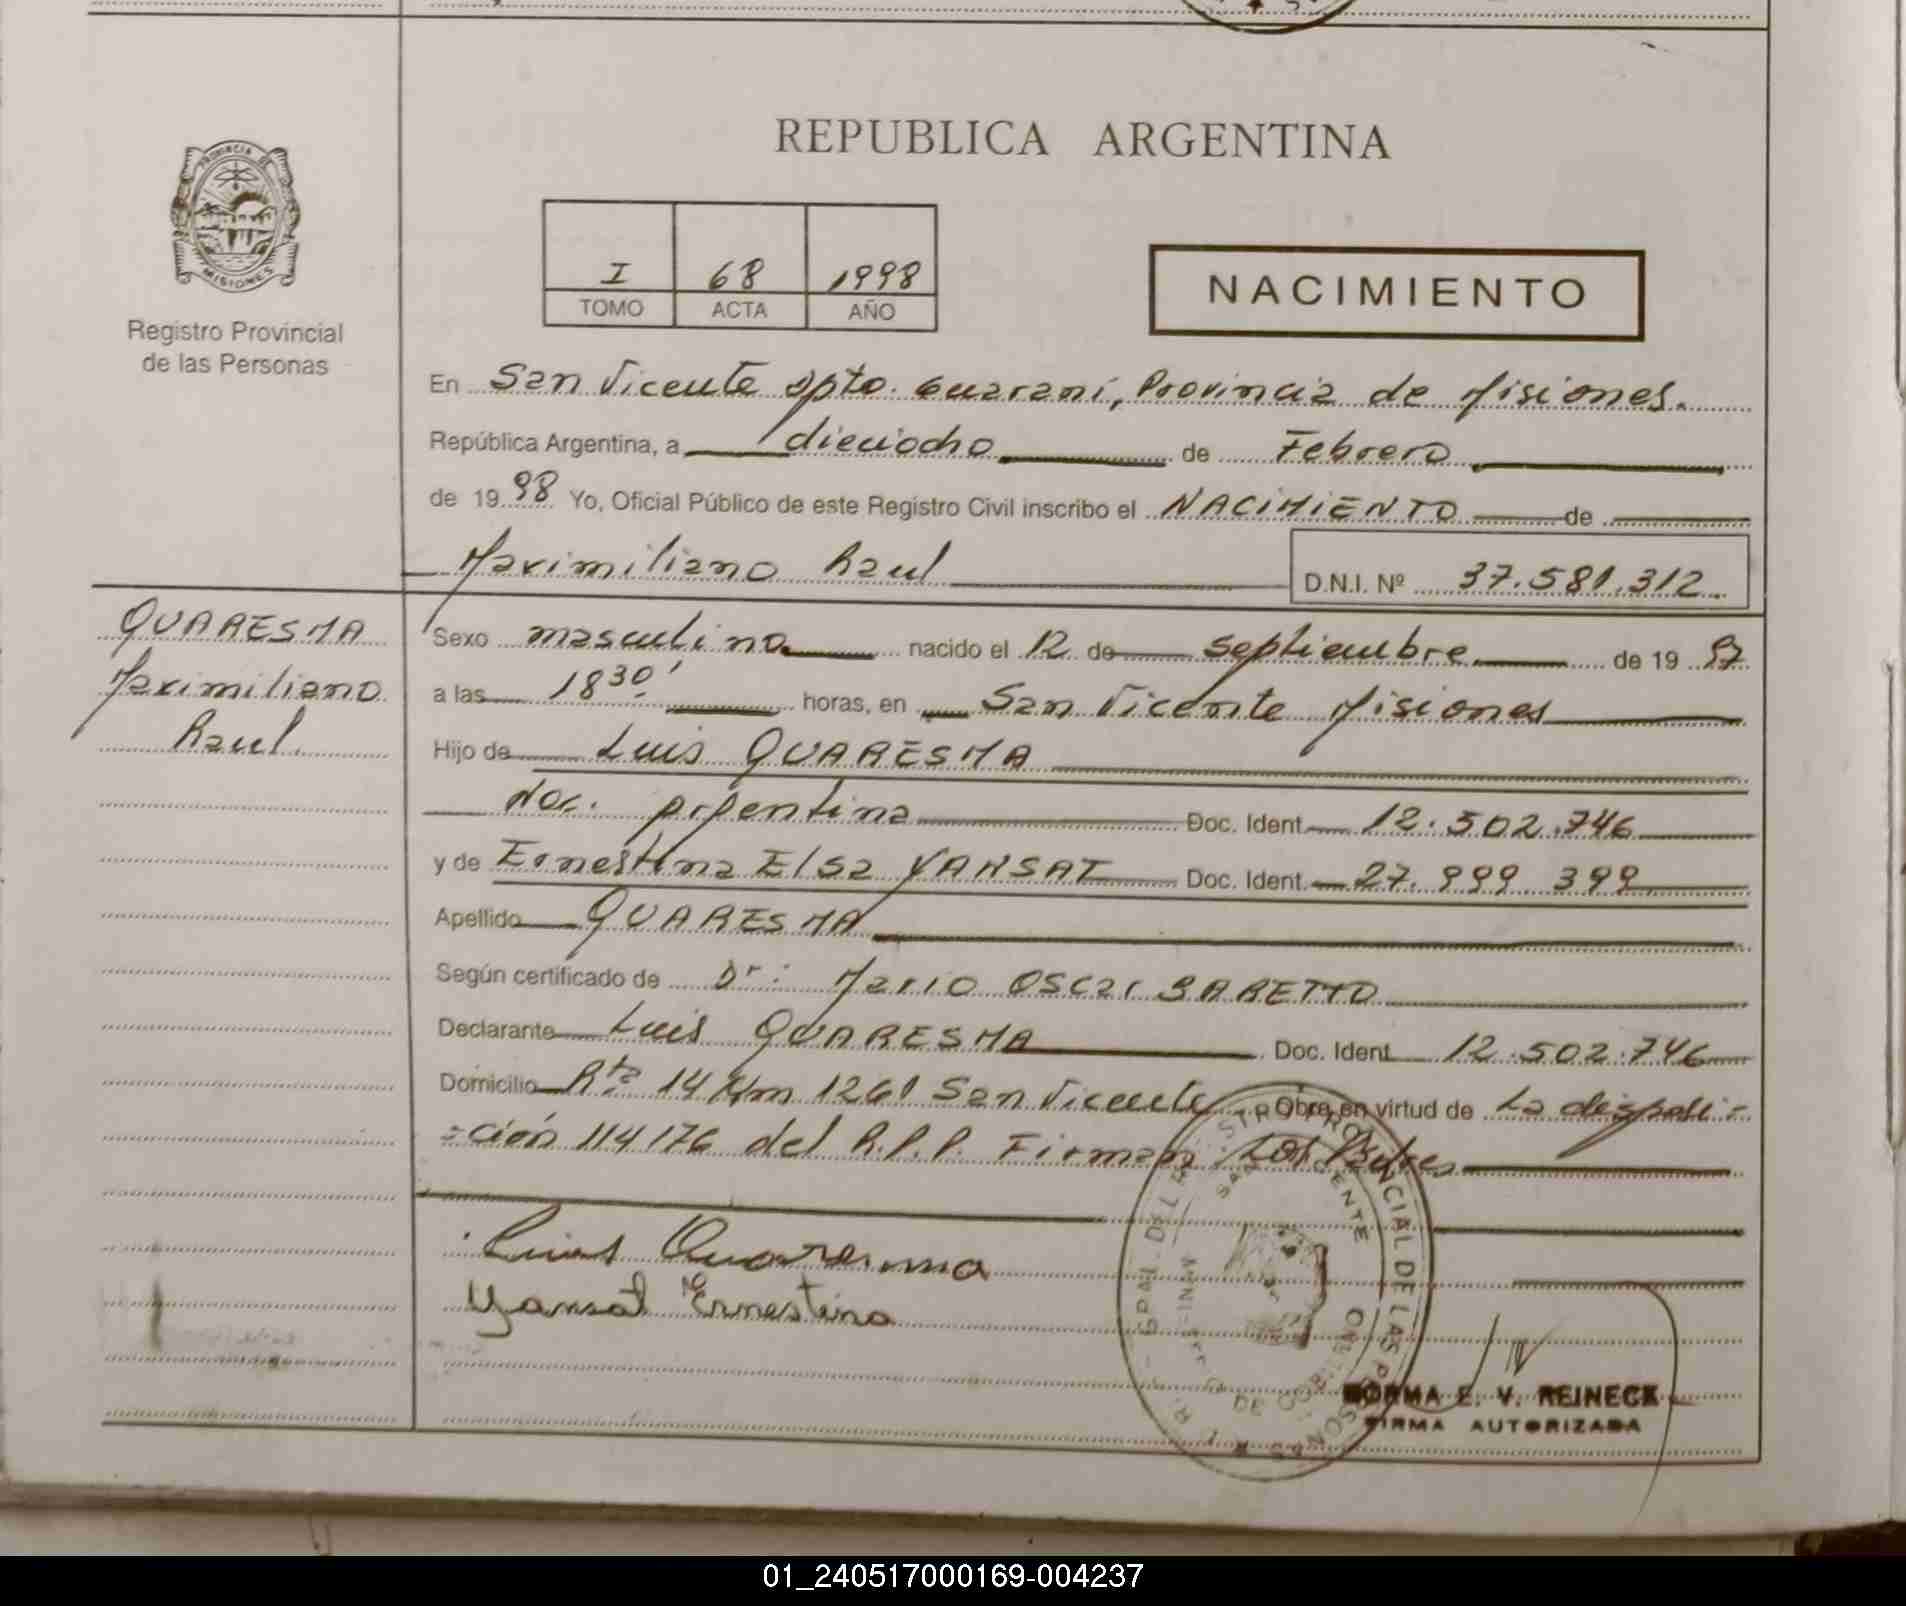 REPUBLICA ARGENTINA
PROVINCIA DE
MISIONES
Registro Provincial
de las Personas
I 68 1998
TOMO ACTA AÑO
NACIMIENTO
En San Vicente Dpto. Guaraní, Provincia de Misiones.
República Argentina, a dieciocho de Febrero
de 1998 Yo, Oficial Público de este Registro Civil inscribo el NACIMIENTO de
Maximiliano Raul D.N.I. Nº 37.581.312.
QUARESMA
Maximiliano
Raul.
Sexo masculino nacido el 12 de septiembre de 1997
a las 18³⁰' horas, en San Vicente Misiones
Hijo de Luis QUARESMA
Nac. Argentina Doc. Ident. 12.502.746
y de Ernestina Elsa YANSAT Doc. Ident. 27.999 399
Apellido QUARESMA
Según certificado de Dr: Mario OSCAR BARETTO
Declarante Luis QUARESMA Doc. Ident. 12.502.746
Domicilio Rta 14 Km 1261 San Vicente Obra en virtud de La disposi=
=ción 114176 del R.P.P. Firman Los Padres
Luis Quaresma
Yansat Ernestina
SAN VICENTE
NORMA E. V. REINECK
FIRMA AUTORIZADA
01_240517000169-004237